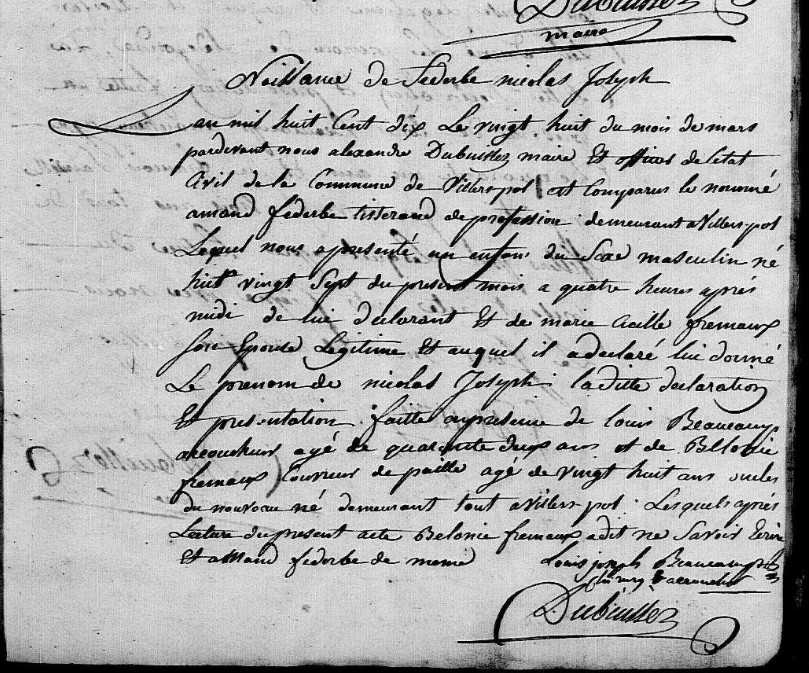 Dubuissez
maire
Naissance de federbe nicolas Joseph
L'an mil huit Cent dix Le vingt huit du mois de mars
pardevant nous alexandre Dubuissez maire Et officier de l'etat
Civil de la Commune de Villerspol est Comparus le nommé
amand federbe tisserand de profession demeurant a Villerspol
Lequel nous a presenté un enfant du Sexe masculin né
vingt Sept du present mois a quatre heures après
midi de lui declarant Et de marie fremaux
Son Epouse Legitime Et auquel il a declaré lui donné
Le prenom de nicolas Joseph laditte declaration
Et presentation faitte a presence de louis Beaucamp
accoucheur agé de quarante deux ans et de Belonie
fremaux Couvreur de paille agé de vingt huit ans oncles
du nouveau né demeurant tout a Villerspol Lesquels après
Lecture du present acte Belonie fremaux a dit ne Savoir Ecrire
Et amand federbe de meme Louis joseph Beaucamp
Dubuissez